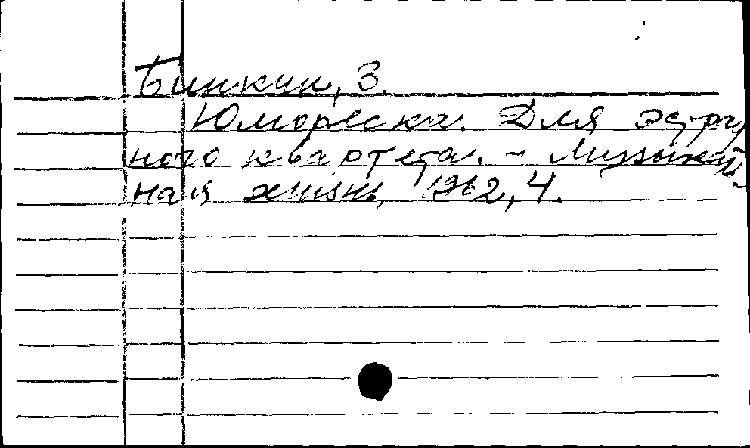 Бинкин, З.
Юмореска. Для эстрад
ного квартета. - Музыкаль
ная жизнь, 1962, 4.